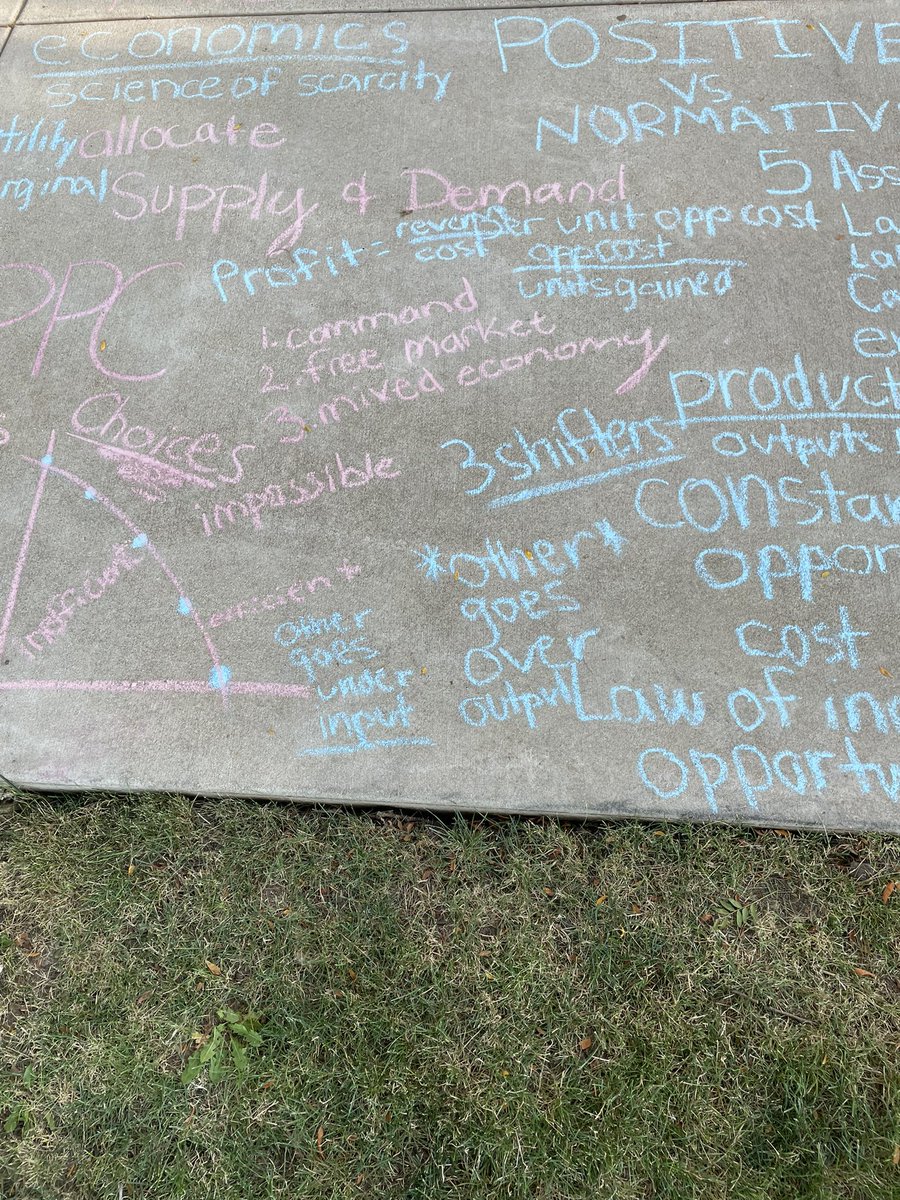 economics
science of scarcity
POSITIVE
vs.
NORMATIV
tility allocate
rginal Supply & Demand
5 Ass
Profit = revenue per unit opp cost
cost opp cost
units gained
La
Lan
Ca
en
PPC
1. command
2. free market
3. mixed economy
s Choices
impossible
inefficient
efficient *
3 shifters
product
outputs
constan
oppor
cost
*other*
goes
over
output
other
goes
under
input
Law of inc
opportu